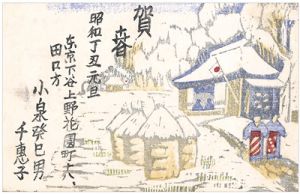 賀春
昭和丁丑元旦
東京下谷上野花園町六、
田口方
小泉癸巳男
千恵子